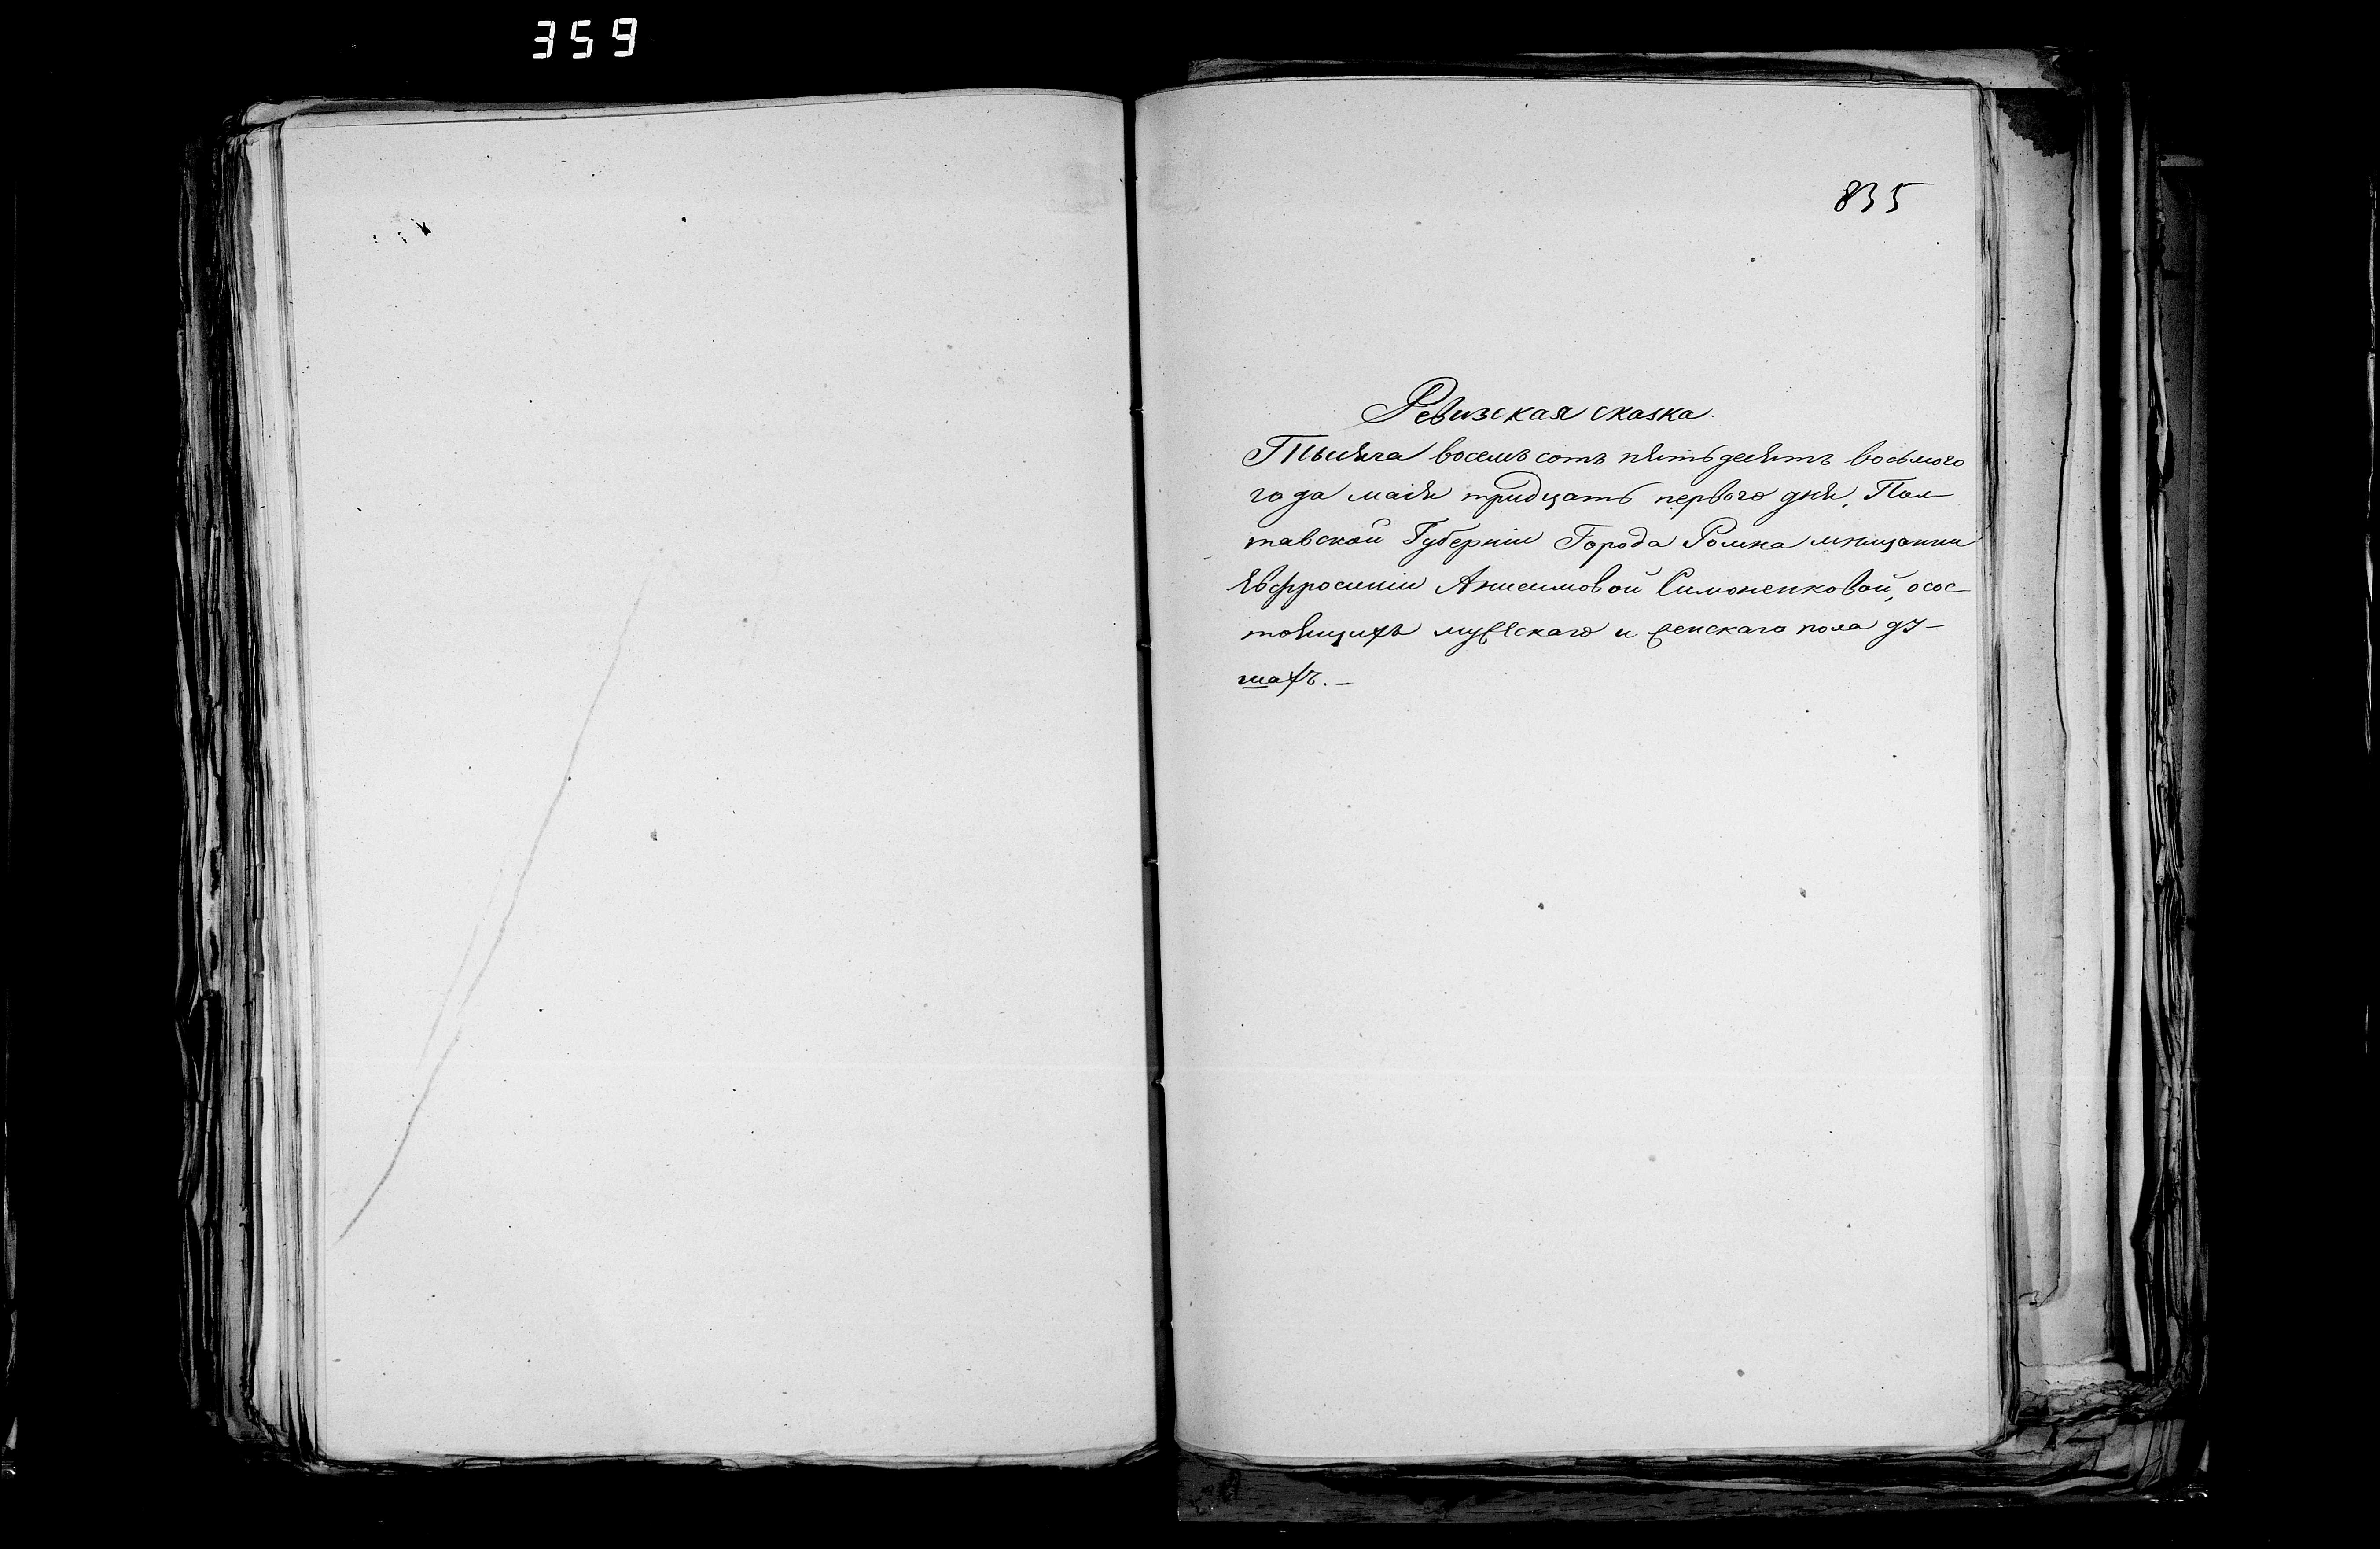 359
835
Ревизская сказка.
Тысяча восемь сотъ пятьдесятъ восьмого
года маія тридцать первого дня, Пол-
тавской Губерніи Города Ромна мѣщанки
Евфросиніи Анисимовой Симоненковой, осос-
тоящихъ мужскаго и женскаго пола ду-
шахъ. —